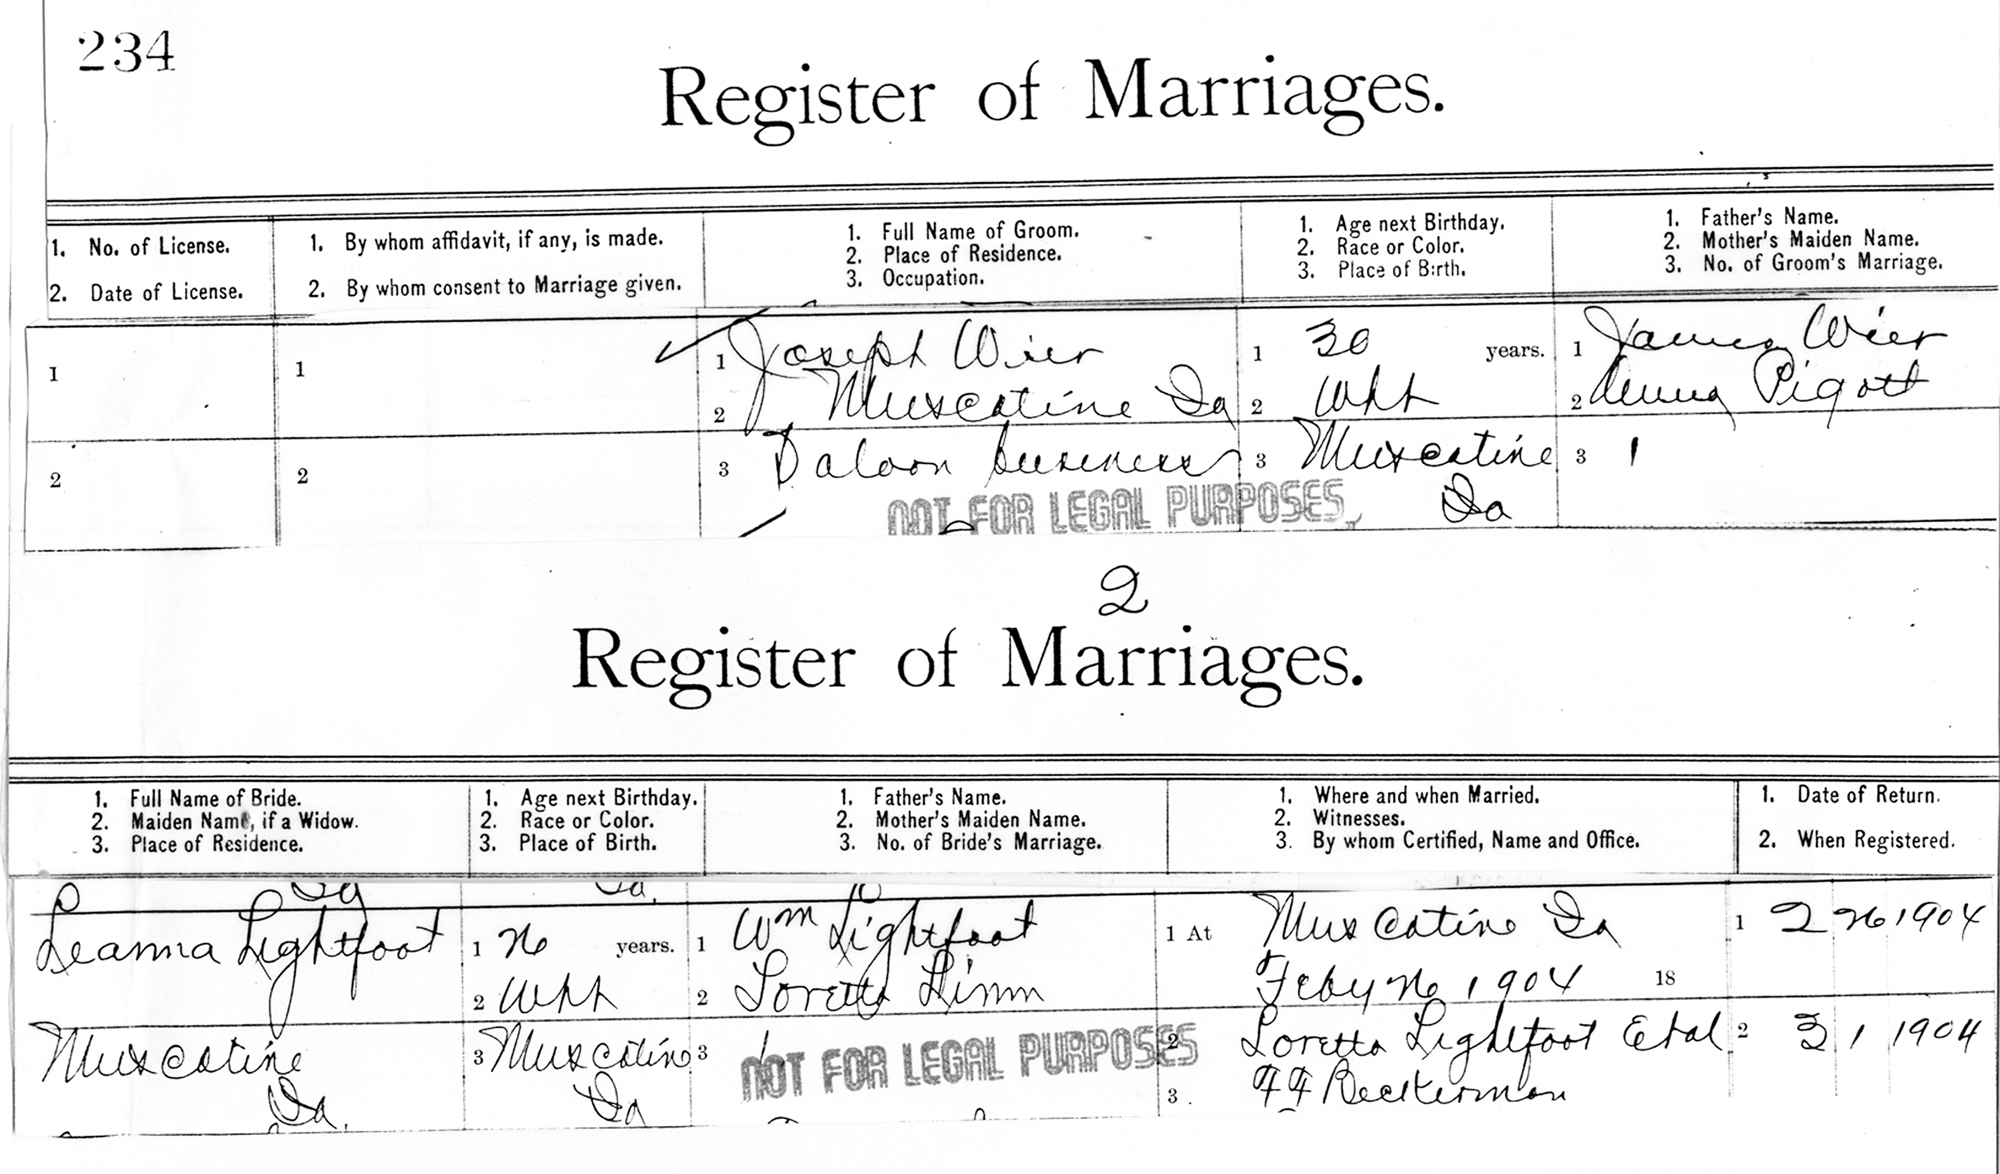 234
Register of Marriages.
1. No. of License.
2. Date of License.
1. By whom affidavit, if any, is made.
2. By whom consent to Marriage given.
1. Full Name of Groom.
2. Place of Residence.
3. Occupation.
1. Age next Birthday.
2. Race or Color.
3. Place of Birth.
1. Father's Name.
2. Mother's Maiden Name.
3. No. of Groom's Marriage.
1
2
1
2
1 Joseph Wier
2 Muscatine Ia
3 Saloon business
1 30 years.
2 Wht
3 Muscatine
Ia
1 James Wier
2 Anna Pigott
3 1
NOT FOR LEGAL PURPOSES
2
Register of Marriages.
1. Full Name of Bride.
2. Maiden Name, if a Widow.
3. Place of Residence.
1. Age next Birthday.
2. Race or Color.
3. Place of Birth.
1. Father's Name.
2. Mother's Maiden Name.
3. No. of Bride's Marriage.
1. Where and when Married.
2. Witnesses.
3. By whom Certified, Name and Office.
1. Date of Return.
2. When Registered.
Leanna Lightfoot
Muscatine
Ia.
1 26 years.
2 Wht
3 Muscatine
Ia
1 Wm Lightfoot
2 Loretta Linn
3 1
NOT FOR LEGAL PURPOSES
1 At Muscatine Ia
Feby 26 1904 18
2 Loretta Lightfoot Etal
3. F F Beckerman
1 2 26 1904
2 3 1 1904